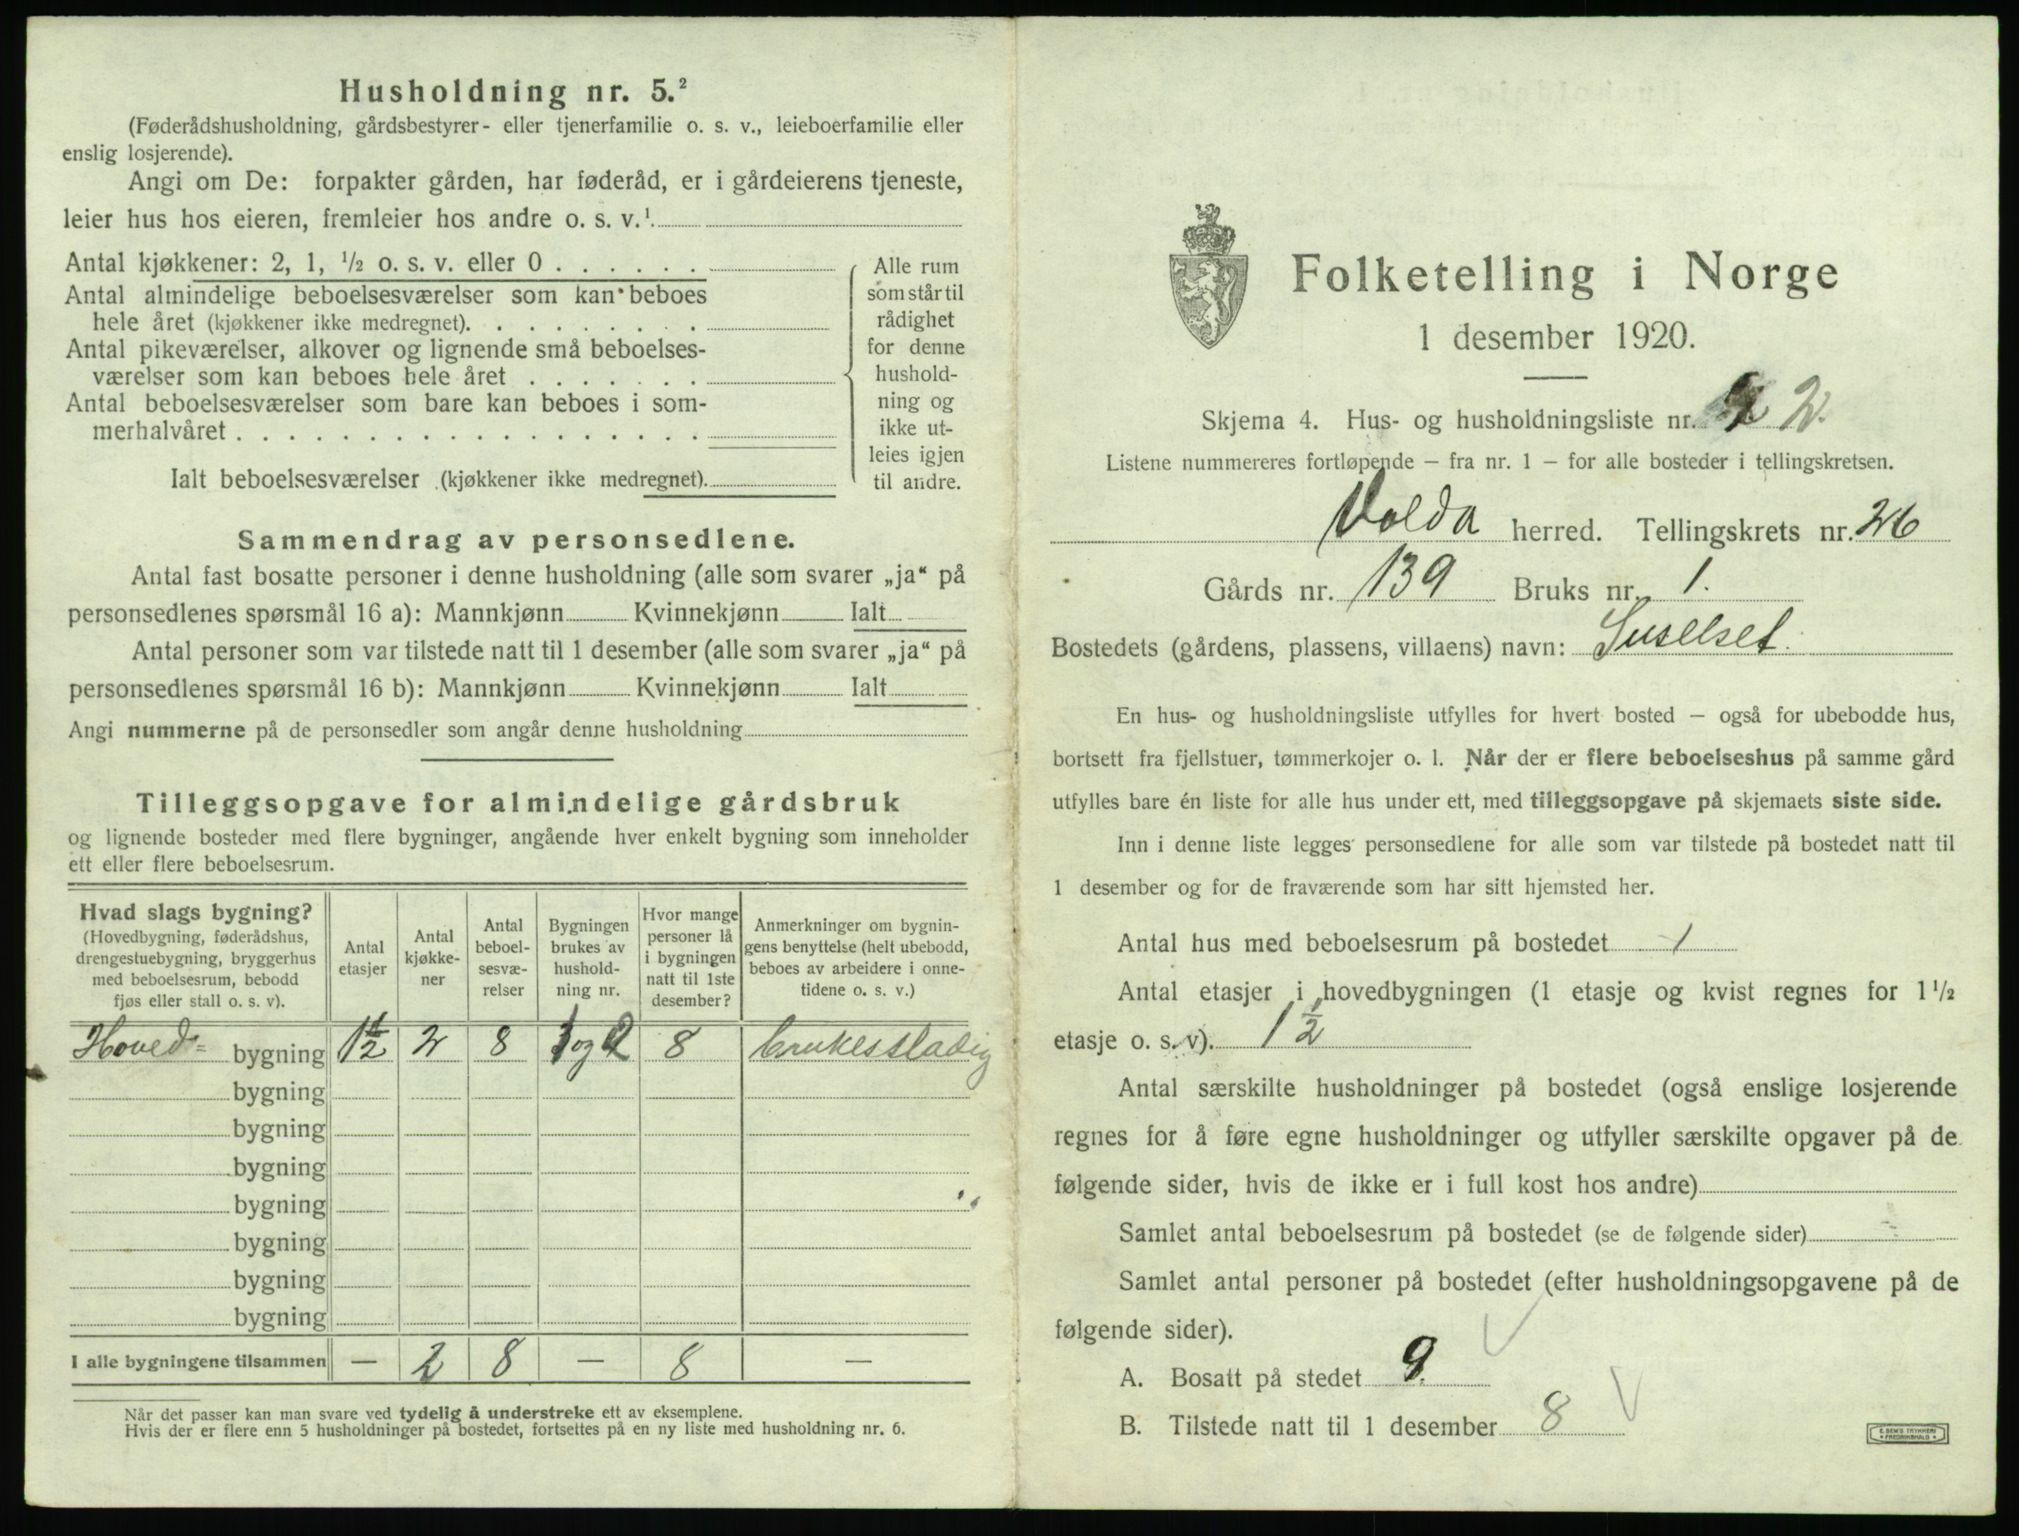 Husholdning nr. 5.²
(Føderådshusholdning, gårdsbestyrer- eller tjenerfamilie o. s. v., leieboerfamilie eller
enslig losjerende).
Angi om De: forpakter gården, har føderåd, er i gårdeierens tjeneste,
leier hus hos eieren, fremleier hos andre o. s. v.¹
Antal kjøkkener: 2, 1, ½ o. s. v. eller 0 . . . . . .
Antal almindelige beboelsesværelser som kan beboes
hele året (kjøkkener ikke medregnet). . . . . . . . .
Antal pikeværelser, alkover og lignende små beboelses-
værelser som kan beboes hele året . . . . . . .
Antal beboelsesværelser som bare kan beboes i som-
merhalvåret . . . . . . . . . . . . . . . . . .
Ialt beboelsesværelser (kjøkkener ikke medregnet).
Alle rum
som står til
rådighet
for denne
hushold-
ning og
ikke ut-
leies igjen
til andre.
Sammendrag av personsedlene.
Antal fast bosatte personer i denne husholdning (alle som svarer „ja“ på
personsedlenes spørsmål 16 a): Mannkjønn Kvinnekjønn Ialt
Antal personer som var tilstede natt til 1 desember (alle som svarer „ja“ på
personsedlenes spørsmål 16 b): Mannkjønn Kvinnekjønn Ialt
Angi nummerne på de personsedler som angår denne husholdning
Tilleggsopgave for almindelige gårdsbruk
og lignende bosteder med flere bygninger, angående hver enkelt bygning som inneholder
ett eller flere beboelsesrum.
Hvad slags bygning?
(Hovedbygning, føderådshus,
drengestuebygning, bryggerhus
med beboelsesrum, bebodd
fjøs eller stall o. s. v).
Antal
etasjer
Antal
kjøkke-
ner
Antal
beboel-
sesvæ-
relser
Bygningen
brukes av
hushold-
ning nr.
Hvor mange
personer lå
i bygningen
natt til 1ste
desember?
Anmerkninger om bygnin-
gens benyttelse (helt ubebodd,
beboes av arbeidere i onne-
tidene o. s. v.)
Hoved= bygning 1½ 2 8 1 og 2 8 brukes stadig
bygning
bygning
bygning
bygning
bygning
bygning
bygning
I alle bygningene tilsammen — 2 8 — 8 —
Når det passer kan man svare ved tydelig å understreke ett av eksemplene.
Hvis der er flere enn 5 husholdninger på bostedet, fortsettes på en ny liste med husholdning nr. 6.
Folketelling i Norge
1 desember 1920.
Skjema 4. Hus- og husholdningsliste nr. 2.
Listene nummereres fortløpende – fra nr. 1 – for alle bosteder i tellingskretsen.
Volda herred. Tellingskrets nr. 26
Gårds nr. 139 Bruks nr. 1.
Bostedets (gårdens, plassens, villaens) navn: Suselset.
En hus- og husholdningsliste utfylles for hvert bosted – også for ubebodde hus,
bortsett fra fjellstuer, tømmerkojer o. l. Når der er flere beboelseshus på samme gård
utfylles bare én liste for alle hus under ett, med tilleggsopgave på skjemaets siste side.
Inn i denne liste legges personsedlene for alle som var tilstede på bostedet natt til
1 desember og for de fraværende som har sitt hjemsted her.
Antal hus med beboelsesrum på bostedet 1
Antal etasjer i hovedbygningen (1 etasje og kvist regnes for 1½
etasje o. s. v). 1½
Antal særskilte husholdninger på bostedet (også enslige losjerende
regnes for å føre egne husholdninger og utfyller særskilte opgaver på de
følgende sider, hvis de ikke er i full kost hos andre)
Samlet antal beboelsesrum på bostedet (se de følgende sider)
Samlet antal personer på bostedet (efter husholdningsopgavene på de
følgende sider).
A. Bosatt på stedet 9.
B. Tilstede natt til 1 desember 8
E. SEM'S TRYKKERI
FREDRIKSHALD